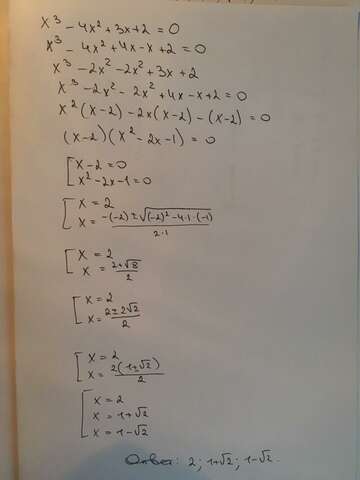 x³ - 4x² + 3x + 2 = 0
x³ - 4x² + 4x - x + 2 = 0
x³ - 2x² - 2x² + 3x + 2
x³ - 2x² - 2x² + 4x - x + 2 = 0
x²(x-2) - 2x(x-2) - (x-2) = 0
(x-2)(x² - 2x - 1) = 0
[ x - 2 = 0
x² - 2x - 1 = 0
[ x = 2
x = (-(-2) ± √((-2)² - 4·1·(-1))) / (2·1)
[ x = 2
x = (2 ± √8) / 2
[ x = 2
x = (2 ± 2√2) / 2
[ x = 2
x = (2(1 ± √2)) / 2
[ x = 2
x = 1 + √2
x = 1 - √2
Ответ: 2; 1+√2; 1-√2.